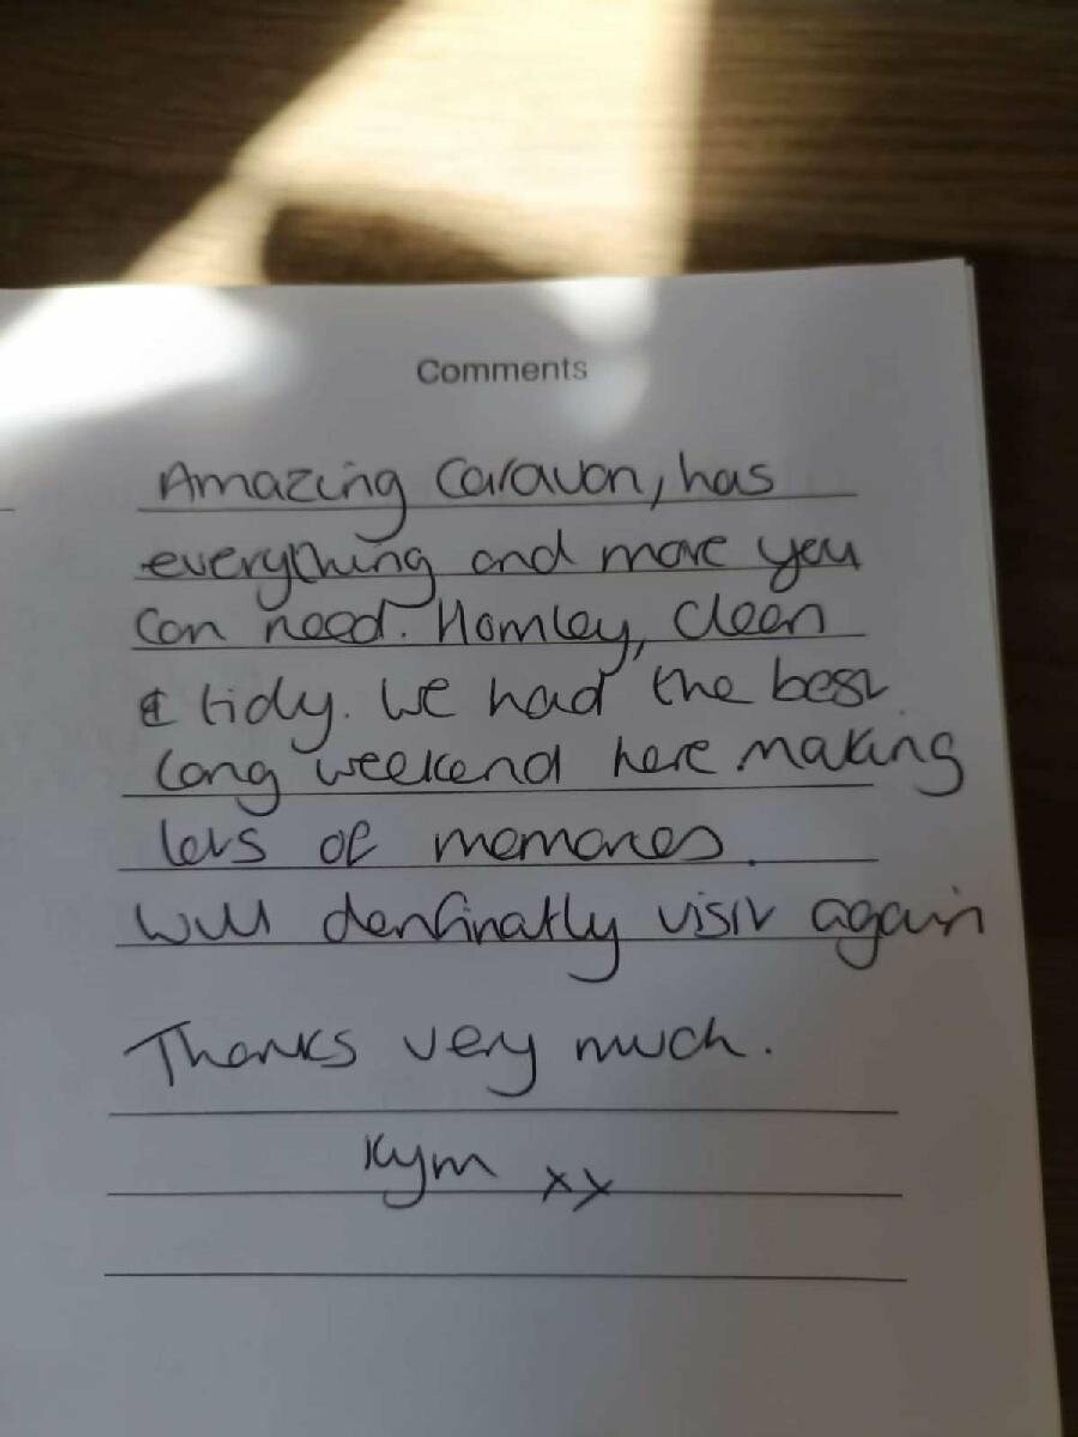 Comments
Amazing Caravan, has
everything and more you
can need. Homley, clean
& tidy. We had the best
long weekend here making
lots of memories.
Will denfinatly visit again
Thanks very much.
Kym xx